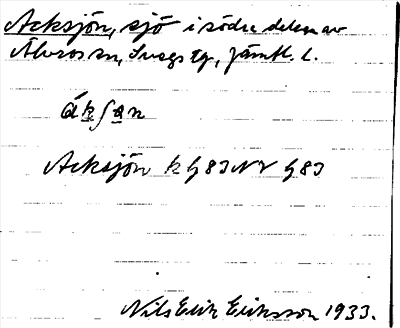 Acksjön, sjö i södra delen av
Älvros sn, Svegs tg, Jämtl. l.
ák∫an
Acksjön k G83NV G83
Nils Erik Eriksson 1933.